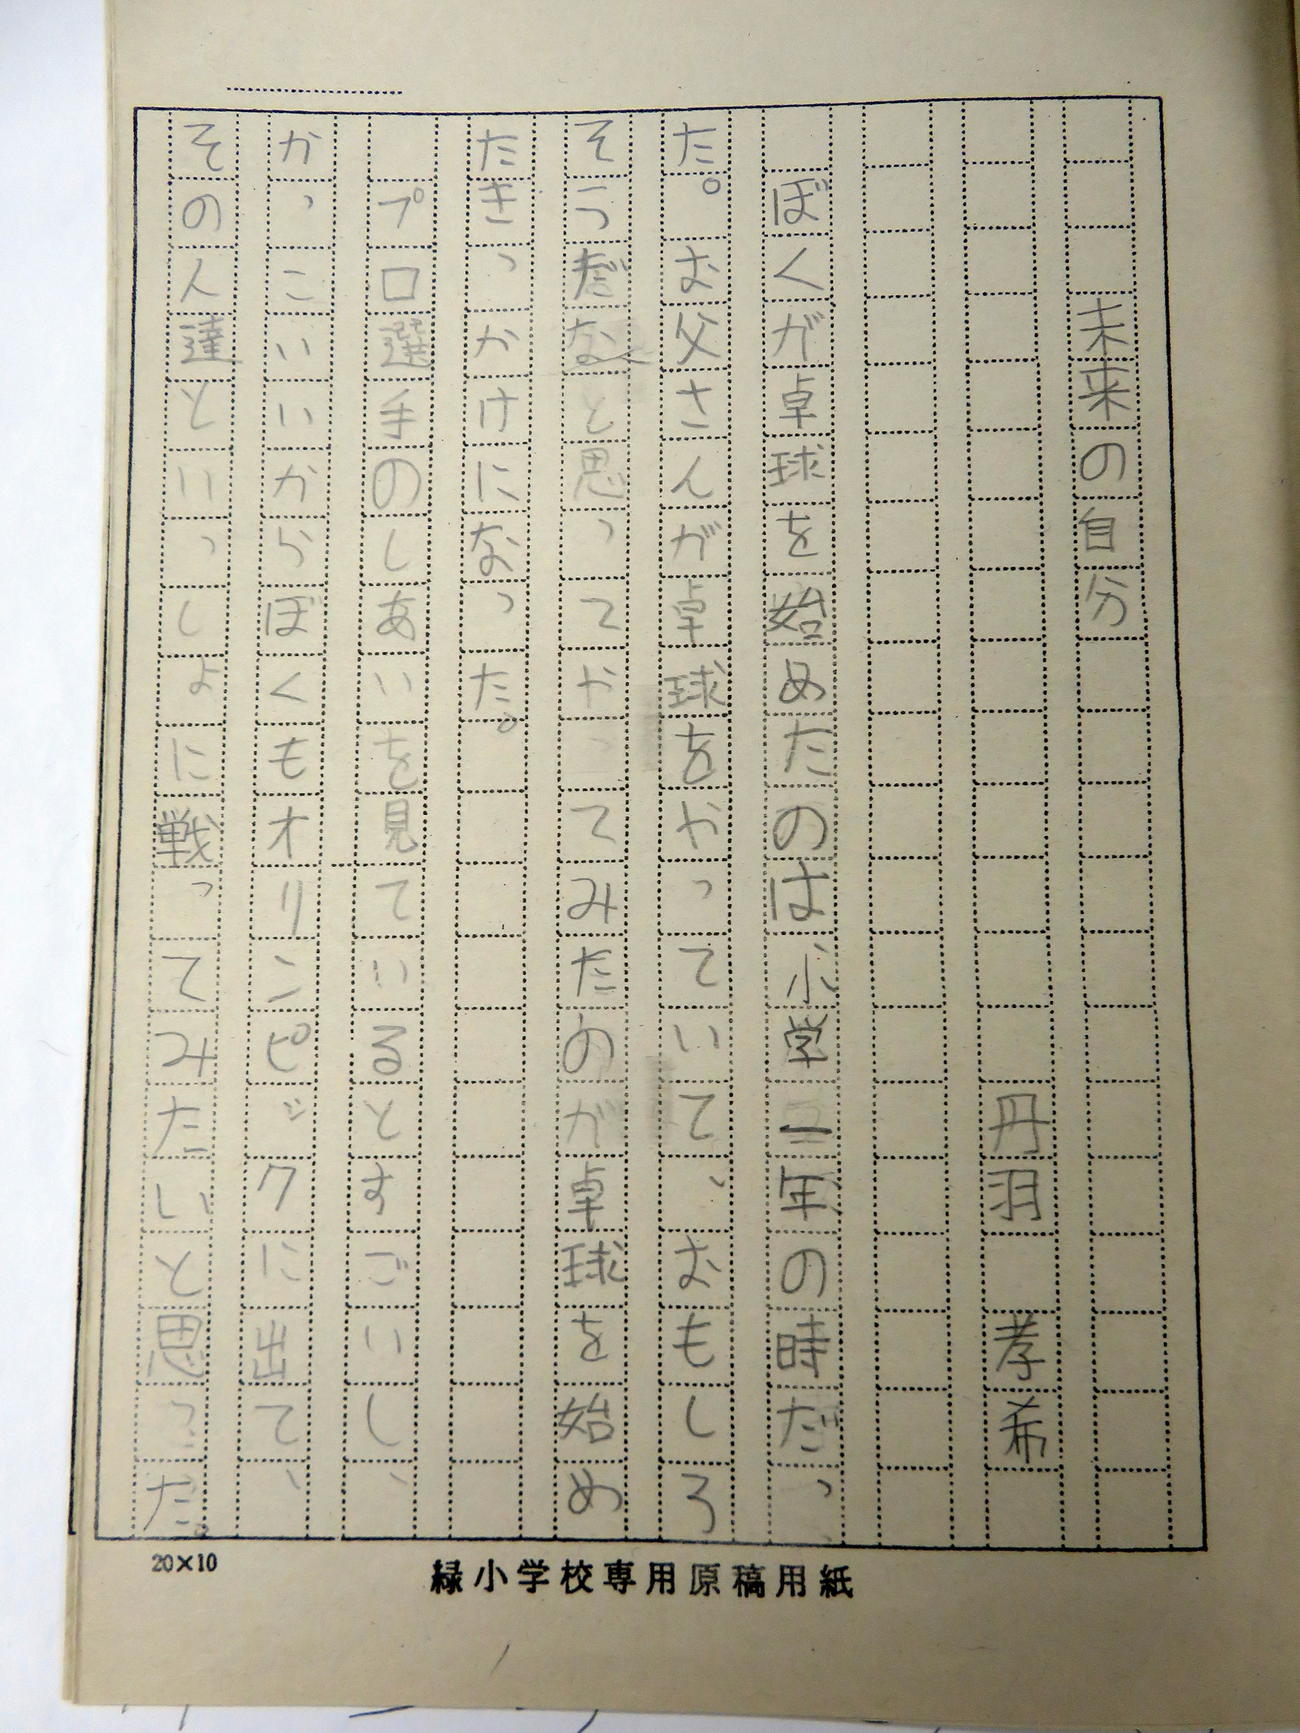 未来の自分
丹羽　孝希
ぼくが卓球を始めたのは小学一年の時だっ
た。お父さんが卓球をやっていて、おもしろ
そうだなと思ってやってみたのが卓球を始め
たきっかけになった。
プロ選手のしあいを見ているとすごいし、
かっこいいからぼくもオリンピックに出て、
その人達といっしょに戦ってみたいと思った。
20×10
緑小学校専用原稿用紙